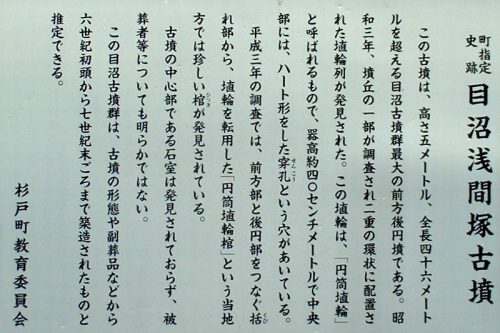 町指定
史跡
目沼浅間塚古墳
この古墳は、高さ五メートル、全長四十六メート
ルを超える目沼古墳群最大の前方後円墳である。昭
和三年、墳丘の一部が調査され二重の環状に配置さ
れた埴輪列が発見された。この埴輪は、「円筒埴輪」
と呼ばれるもので、器高約四〇センチメートルで中央
部には、ハート形をした穿孔という穴があいている。
平成三年の調査では、前方部と後円部をつなぐ括
れ部から、埴輪を転用した「円筒埴輪棺」という当地
方では珍しい棺が発見されている。
古墳の中心部である石室は発見されておらず、被
葬者等についても明らかではない。
この目沼古墳群は、古墳の形態や副葬品などから
六世紀初頭から七世紀末ごろまで築造されたものと
推定できる。
杉戸町教育委員会